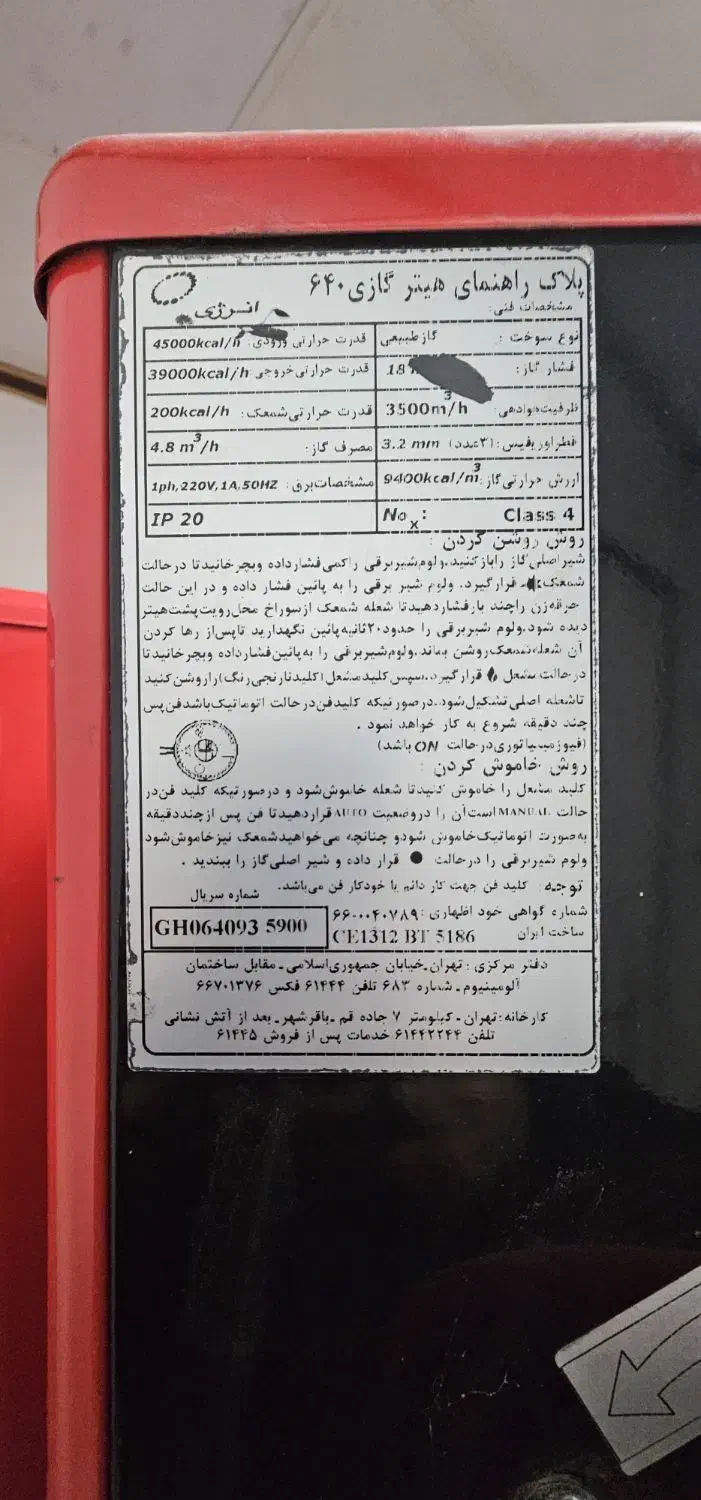 پلاک راهنمای هیتر گازی ۶۴۰
انرژی
مشخصات فنی:
نوع سوخت : گاز طبیعی
قدرت حرارتی ورودی: 45000kcal/h
فشار گاز:
قدرت حرارتی خروجی 39000kcal/h
ظرفیت هوادهی: 3500m³/h
قدرت حرارتی شمعک: 200kcal/h
قطر اوریفیس: (۳عدد) 3.2 mm
مصرف گاز: 4.8 m³/h
ارزش حرارتی گاز: 9400kcal/m³
مشخصات برق: 1ph,220V,1A,50HZ
NoX: Class 4
IP 20
روش روشن کردن :
شیر اصلی گاز را باز کنید.ولوم شیربرقی را کمی فشار داده و بچرخانید تا در حالت
شمعک قرار گیرد. ولوم شیر برقی را به پائین فشار داده و در این حالت
جرقه زن را چند بار فشار دهید تا شعله شمعک از سوراخ محل رویت پشت هیتر
دیده شود.ولوم شیربرقی را حدود ۲۰ ثانیه پائین نگهدارید تا پس از رها کردن
آن شعله شمعک روشن بماند.ولوم شیربرقی را به پائین فشار داده و بچرخانید تا
در حالت مشعل قرار گیرد.سپس کلید مشعل (کلید نارنجی رنگ) را روشن کنید
تا شعله اصلی تشکیل شود.در صورتیکه کلید فن در حالت اتوماتیک باشد فن پس
چند دقیقه شروع به کار خواهد نمود .
(فیوز مینیاتوری در حالت ON باشد)
روش خاموش کردن :
کلید مشعل را خاموش کنید تا شعله خاموش شود و در صورتیکه کلید فن در
حالت MANUAL است آن را در وضعیت AUTO قرار دهید تا فن پس از چند دقیقه
به صورت اتوماتیک خاموش شود و چنانچه می‌خواهید شمعک نیز خاموش شود
ولوم شیربرقی را در حالت ● قرار داده و شیر اصلی گاز را ببندید .
توجه: کلید فن جهت کار دائم یا خودکار فن می‌باشد.
شماره سریال
GH064093 5900
شماره گواهی خود اظهاری: ۶۶-۰۰۴۰۷۸۹
ساخت ایران
CE1312 BT 5186
دفتر مرکزی : تهران-خیابان جمهوری اسلامی-مقابل ساختمان
آلومینیوم-شماره ۶۸۳ تلفن ۶۱۴۴۴ فکس ۶۶۷۰۱۳۷۶
کارخانه:تهران-کیلومتر ۷ جاده قم-باقرشهر-بعد از آتش نشانی
تلفن ۶۱۴۴۲۲۴۴ خدمات پس از فروش ۶۱۴۴۵